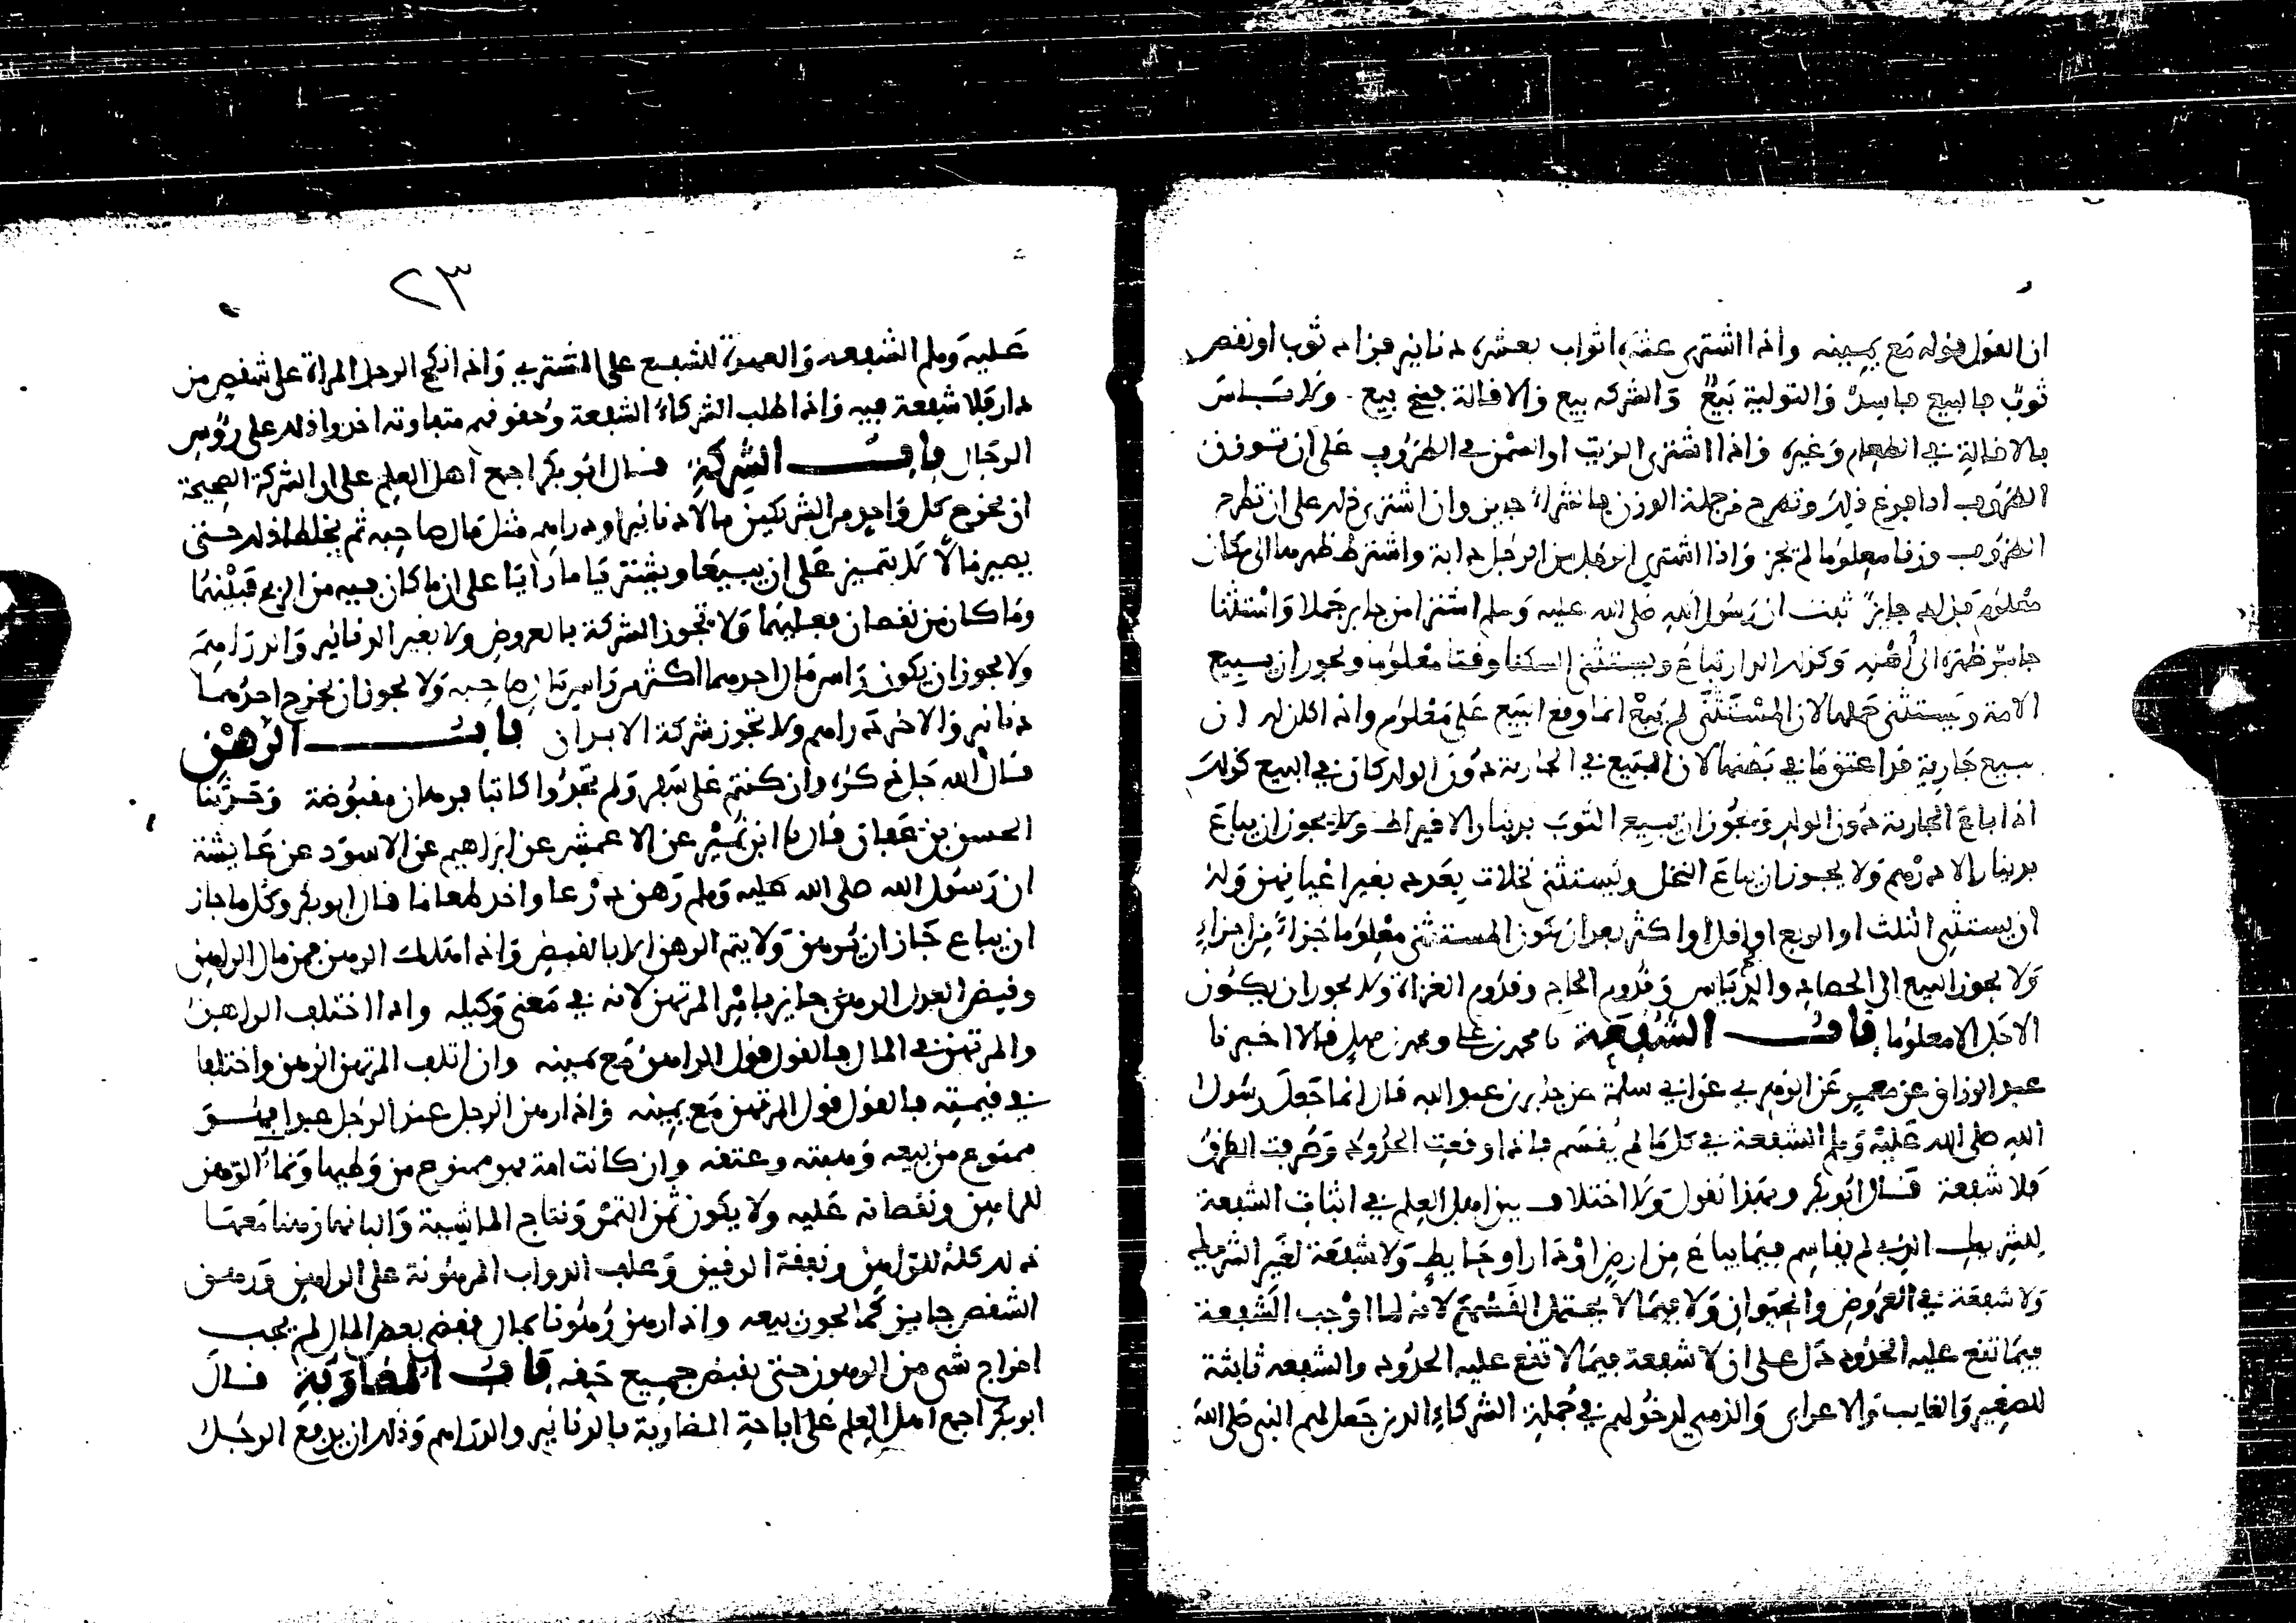 ان القول قوله مع يمينه واذا اشترى عشرة اثواب بعشرة دنانير فزاد ثوب او نقص
ثوب فالبيع فاسد والتولية بيع والشركه بيع والاقالة فسخ بيع ولا باس
بالاقالة في الطعام وغيره واذا اشترى الزيت او السمن في الظروف على ان توزن
الظروف اذا فرغ ذلك وتطرح من جملة الوزن فالشراء جايز وان اشترى ذلك على ان تطرح
الظروف وزنا معلوما لم يجز واذا اشترى الرجل من الرجل دابة واشترط ظهرها الى مكان
معلوم فذلك جايز ثبت ان رسول الله صلى الله عليه وسلم اشترا من جابر جملا واستثنا
جابر ظهره الى وكذلك الدار تباع ويستثنى السكنا وقتا معلوما ويجوز ان يبيع
الامة ويستثنى حملها لان المستثنى لم يبع انما وقع البيع على معلوم واذا كان له ان
يبيع جارية قد اعتق ما في بطنها لان البيع في الجارية دون الولد كان في البيع كذلك
اذا باع الجارية دون الولد ويجوز ان يبيع الثوب بدينار الا قيراط ولا يجوز ان يباع
بدينار الا درهم ولا يجوز ان يباع النخل ويستثنى نخلات بعدد بغير اعيانهن وله
ان يستثنى الثلث او الربع او اقل او اكثر بعد ان يكون المستثنى معلوما جزاء من اجزاء
ولا يجوز البيع الى الحصاد والدياس وقدوم الحاج وقدوم الغزاة ولا يجوز ان يكون
الاجل الا معلوما باب الشفعة نا محمد بن علي ومحمد بن سهل قالا اخبرنا
عبد الرزاق عن معمر عن الزهري عن ابي سلمة عن جابر بن عبد الله قال انما جعل رسول
الله صلى الله عليه وسلم الشفعة في كل ما لم يقسم فاذا وقعت الحدود وصرفت الطرق
فلا شفعة قال ابو بكر وبهذا نقول ولا اختلاف بين اهل العلم في اثبات الشفعة
للشريك الذي لم يقاسم فيما يباع من ارض او دار او حايط ولا شفعة لغير الشريك
ولا شفعة في العروض والحيوان ولا فيما لا يحتمل القسم لانه لما اوجب الشفعة
فيما تقع عليه الحدود دل على ان لا شفعة فيما لا تقع عليه الحدود والشفعه ثابتة
للصغير والغايب والاعرابي والذمي لدخولهم في جملة الشركاء الذين جعل لهم النبي صلى الله
٢٣
عليه وسلم الشفعه والعهدة للشفيع على المشتري واذا نكح الرجل المراة على شقص من
دار فلا شفعة فيه واذا طلب الشركاء الشفعة وحقوقهم متفاوته اخذوا ذلك على رؤس
الرجال باب الشركة قال ابو بكر اجمع اهل العلم على ان الشركة الصحيحة
ان يخرج كل واحد من الشريكين مالا دنانير او دراهم مثل مال صاحبه ثم يخلطا ذلك حتى
يصير مالا لا يتميز على ان يبيعا ويشتريا ما رايا على ان ما كان فيه من الربح فبينهما
وما كان من نقصان فعليهما ولا تجوز الشركة بالعروض ولا بغير الدنانير والدراهم
ولا يجوز ان يكون راس مال احدهما اكثر من راس مال صاحبه ولا يجوز ان يخرج احدهما
دنانير والاخر دراهم ولا تجوز شركة الابدان باب الرهن
قال الله جل ذكره وان كنتم على سفر ولم تجدوا كاتبا فرهان مقبوضة وحدثنا
الحسن بن عفان قال نا ابن نمير عن الاعمش عن ابراهيم عن الاسود عن عايشة
ان رسول الله صلى الله عليه وسلم رهن درعا واخذ طعاما قال ابو بكر وكل ما جاز
ان يباع جاز ان يرهن ولا يتم الرهن الا بالقبض واذا هلك الرهن فمن مال الراهن
وقبض العدل الرهن جايز بامر المرتهن لانه في معنى وكيله واذا اختلف الراهن
والمرتهن في المال فالقول قول الراهن مع يمينه وان تلف المرتهن الرهن واختلفا
في قيمته فالقول قول المرتهن مع يمينه واذا رهن الرجل عند الرجل عبدا فهو
ممنوع من بيعه وهبته وعتقه وان كانت امة فهو ممنوع من وطيها ونماء الرهن
للراهن ونقصانه عليه ولا يكون ثمن الثمر ونتاج الماشية والبانها رهنا معها
ذلك كله للراهن ونفقة الرقيق وعلف الدواب المرهونة على الراهن ورهن
الشقص جايز كما يجوز بيعه واذا رهن رهونا بمال فقضى بعض المال لم يجب
اخراج شي من الرهون حتى يقبض جميع حقه باب المضاربة قال
ابو بكر اجمع اهل العلم على اباحة المضاربة بالدنانير والدراهم وذلك ان يدفع الرجل